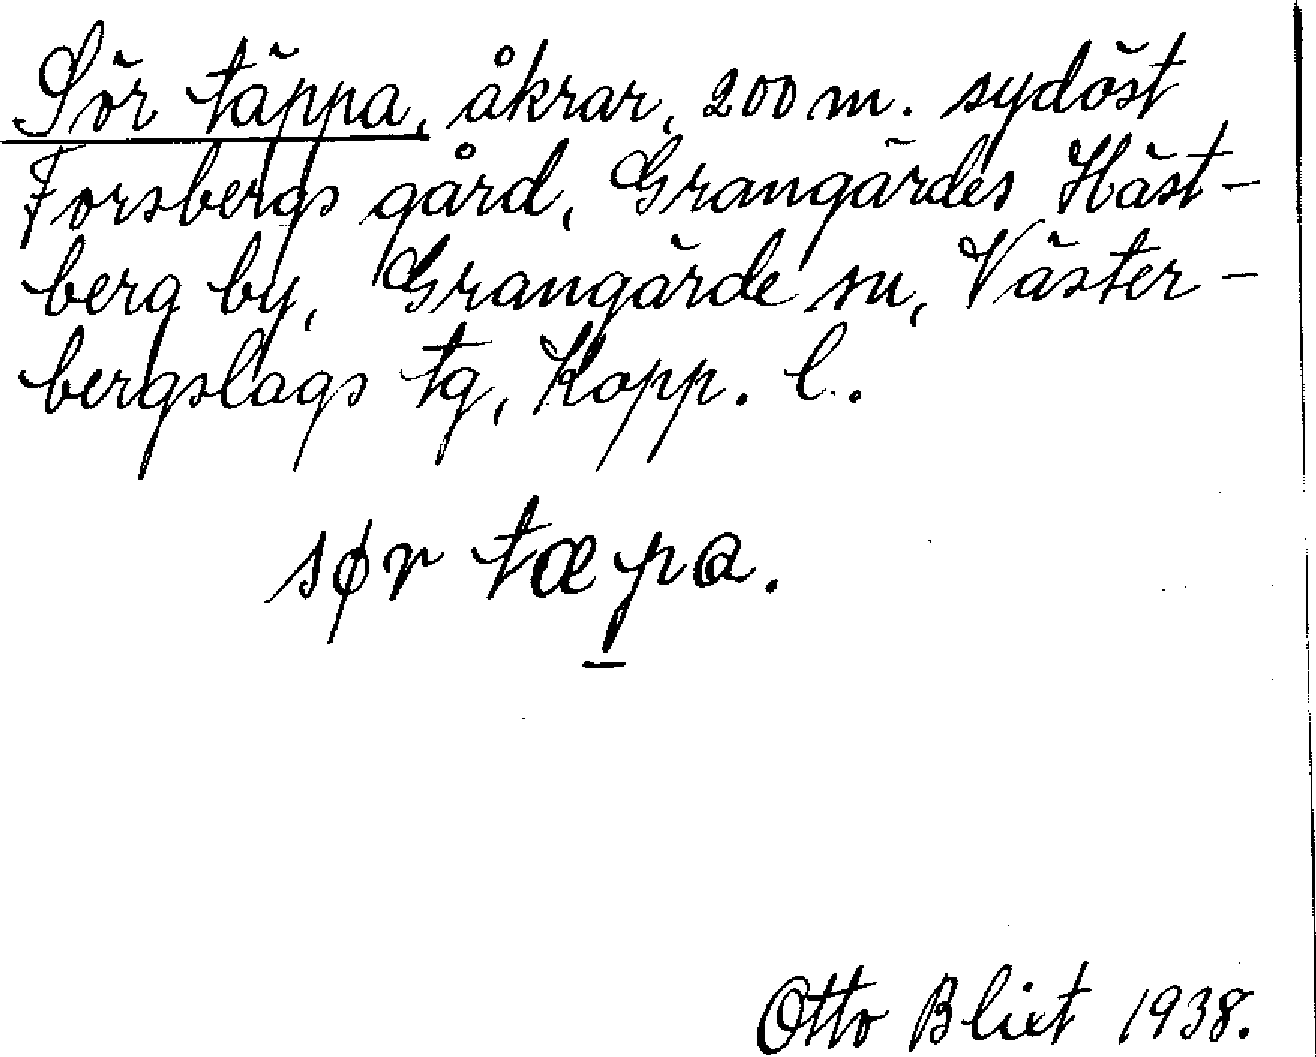 Sör täppa, åkrar, 200 m. sydöst
Forsbergs gård, Grangärdes Häst-
berg by, Grangärde sn, Väster-
bergslags tg, Kopp. l.
sør tæp̲a.
Otto Blixt 1938.